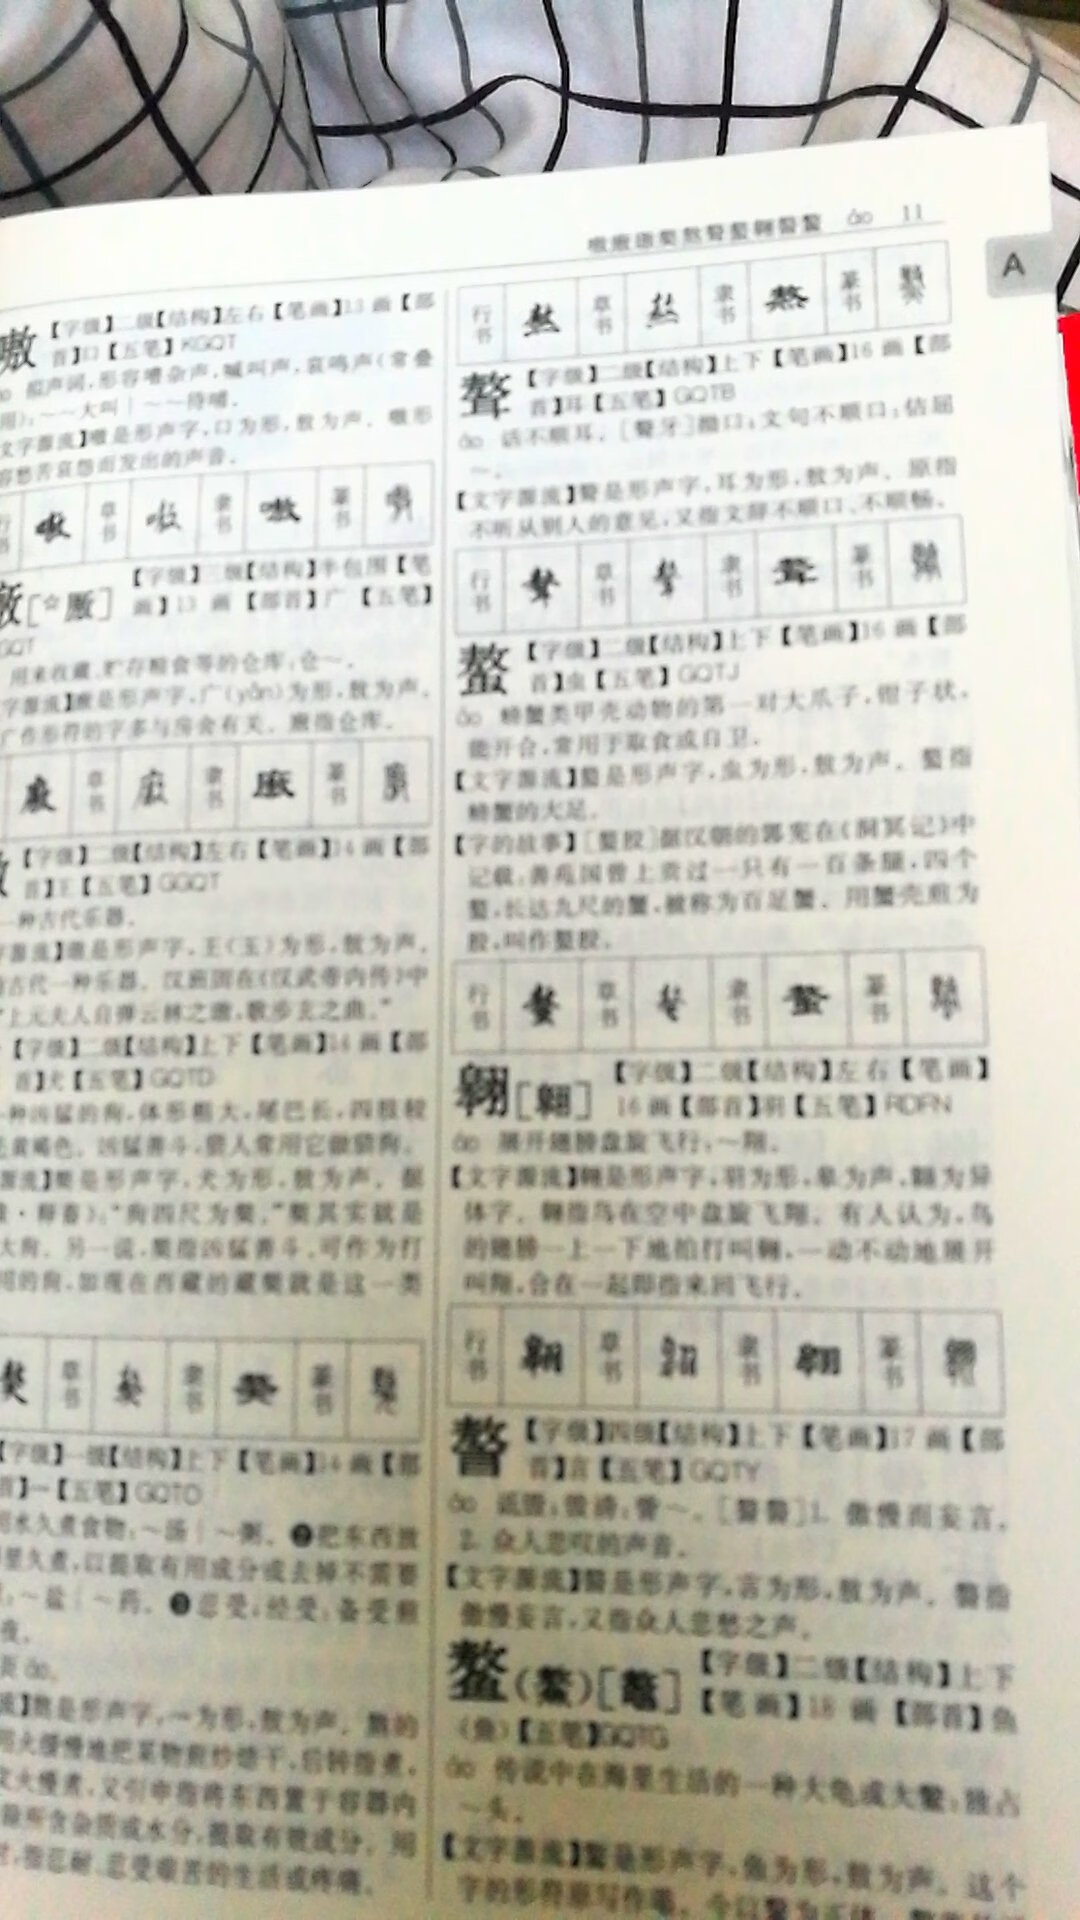 嗷廒璈獒熬聱螯翱謷鳌 áo 11
A
嗷 【字级】二级【结构】左右【笔画】13 画【部
首】口【五笔】KGQT
拟声词,形容嘈杂声,喊叫声,哀鸣声(常叠
用):~~大叫|~~待哺。
文字源流】嗷是形声字,口为形,敖为声。嗷形
容愁苦哀怨而发出的声音。
书 嗷 草书 嗷 隶书 嗷 篆书 嗷
廒[☆厫] 【字级】三级【结构】半包围【笔
画】13 画【部首】广【五笔】
GQT
用来收藏、贮存粮食等的仓库:仓~。
字源流】廒是形声字,广(yǎn)为形,敖为声。
广作形符的字多与房舍有关。廒指仓库。
廒 草书 廒 隶书 廒 篆书 廒
【字级】二级【结构】左右【笔画】14 画【部
首】王【五笔】GGQT
一种古代乐器。
字源流】璈是形声字,王(玉)为形,敖为声。
古代一种乐器。汉班固在《汉武帝内传》中
“上元夫人自弹云林之璈,歌步玄之曲。”
【字级】二级【结构】上下【笔画】14 画【部
首】犬【五笔】GQTD
种凶猛的狗,体形粗大,尾巴长,四肢较
黄褐色。凶猛善斗,猎人常用它做猎狗。
源流】獒是形声字,犬为形,敖为声。据
·释畜》:“狗四尺为獒。”獒其实就是
大狗。另一说,獒指凶猛善斗,可作为打
用的狗,如现在西藏的藏獒就是这一类
獒 草书 獒 隶书 獒 篆书 獒
【字级】一级【结构】上下【笔画】14 画【部
首】灬【五笔】GQTO
用水久煮食物:~汤|~粥。❷把东西放
里久煮,以提取有用成分或去掉不需要
:~盐|~药。❸忍受;经受:备受煎
夜。
áo。
流】熬是形声字,灬为形,敖为声。熬的
用火缓慢地把某物煎炒焙干,后转指煮。
文火慢煮,又引申指将东西置于容器内
除所含杂质或水分,提取有效成分。用
指忍耐、忍受艰苦的生活或疼痛。
行书 熬 草书 熬 隶书 熬 篆书 熬
聱 【字级】二级【结构】上下【笔画】16 画【部
首】耳【五笔】GQTB
áo 话不顺耳。[聱牙]拗口;文句不顺口:佶屈
~。
【文字源流】聱是形声字,耳为形,敖为声。原指
不听从别人的意见,又指文辞不顺口、不顺畅。
行书 聱 草书 聱 隶书 聱 篆书 聱
螯 【字级】二级【结构】上下【笔画】16 画【部
首】虫【五笔】GQTJ
áo 螃蟹类甲壳动物的第一对大爪子,钳子状,
能开合,常用于取食或自卫。
【文字源流】螯是形声字,虫为形,敖为声。螯指
螃蟹的大足。
【字的故事】[螯胶]据汉朝的郭宪在《洞冥记》中
记载:善苑国曾上贡过一只有一百条腿,四个
螯,长达九尺的蟹,被称为百足蟹。用蟹壳煎为
胶,叫作螯胶。
行书 螯 草书 螯 隶书 螯 篆书 螯
翱[翺] 【字级】二级【结构】左右【笔画】
16 画【部首】羽【五笔】RDFN
áo 展开翅膀盘旋飞行:~翔。
【文字源流】翱是形声字,羽为形,皋为声,翺为异
体字。翱指鸟在空中盘旋飞翔。有人认为,鸟
的翅膀一上一下地拍打叫翱,一动不动地展开
叫翔,合在一起即指来回飞行。
行书 翱 草书 翱 隶书 翱 篆书 翱
謷 【字级】四级【结构】上下【笔画】17 画【部
首】言【五笔】GQTY
áo 诋毁;傲谤:訾~。[謷謷]1. 傲慢而妄言。
2. 众人悲叹的声音。
【文字源流】謷是形声字,言为形,敖为声。謷指
傲慢妄言,又指众人悲愁之声。
鳌(鰲)[鼇] 【字级】二级【结构】上下
【笔画】18 画【部首】鱼
(魚)【五笔】GQTG
áo 传说中在海里生活的一种大龟或大鳖:独占
~头。
【文字源流】鳌是形声字,鱼为形,敖为声。这个
字的形符原写作黾,今以鳌为正体。